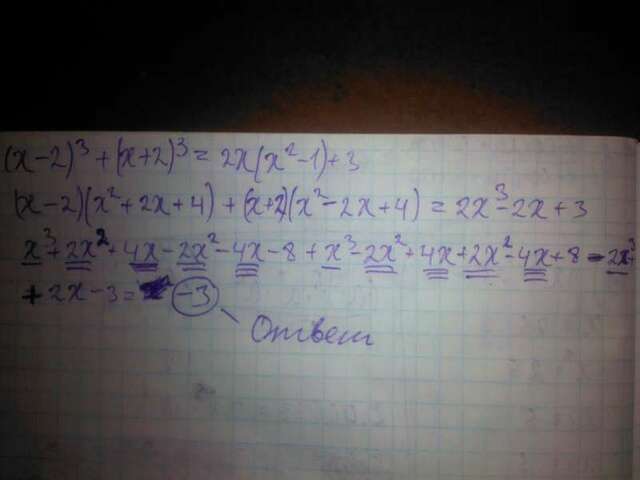 (x-2)³+(x+2)³=2x(x²-1)+3
(x-2)(x²+2x+4)+(x+2)(x²-2x+4)=2x³-2x+3
x³+2x²+4x-2x²-4x-8+x³-2x²+4x+2x²-4x+8-2x³
+2x-3= -3
Ответ